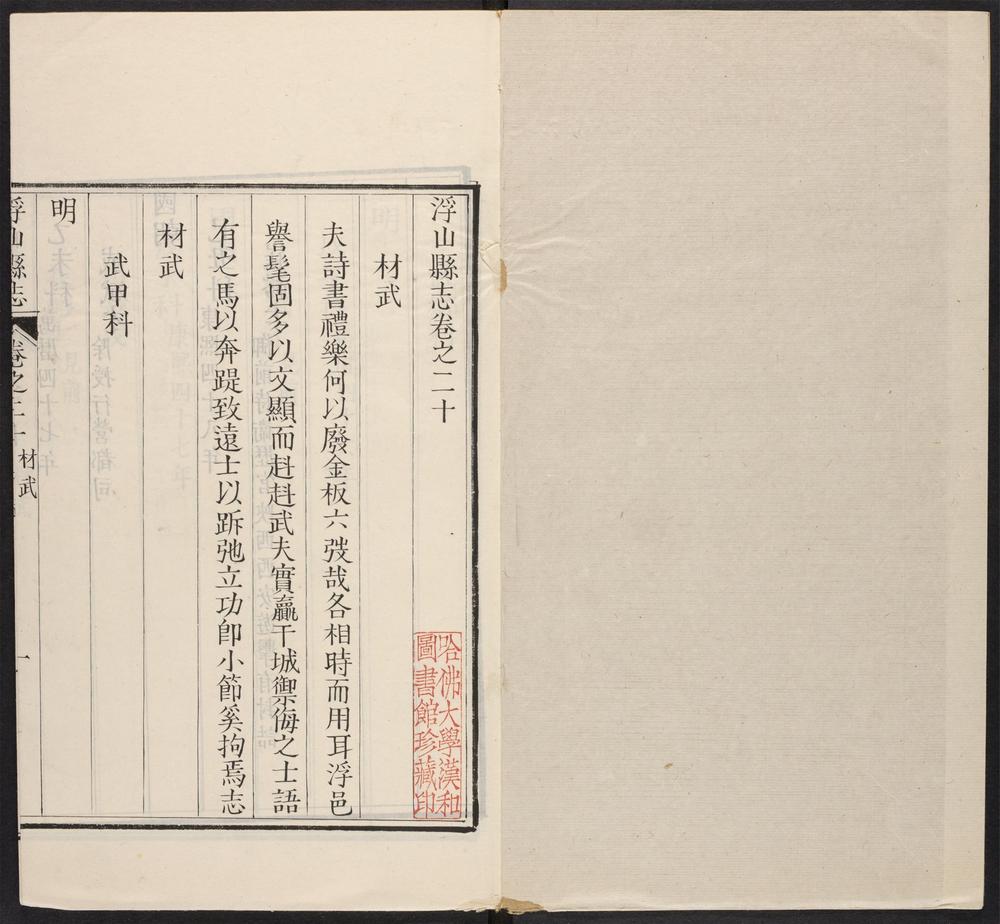 浮山縣志卷之二十
材武
夫詩書禮樂何以廢金板六弢哉各相時而用耳浮邑
譽髦固多以文顯而赳赳武夫實贏干城禦侮之士語
有之馬以奔踶致遠士以跅弛立功卽小節奚拘焉志
材武
武甲科
明
浮山縣志
卷之二十
材武
一
哈佛大學漢和
圖書館珍藏印